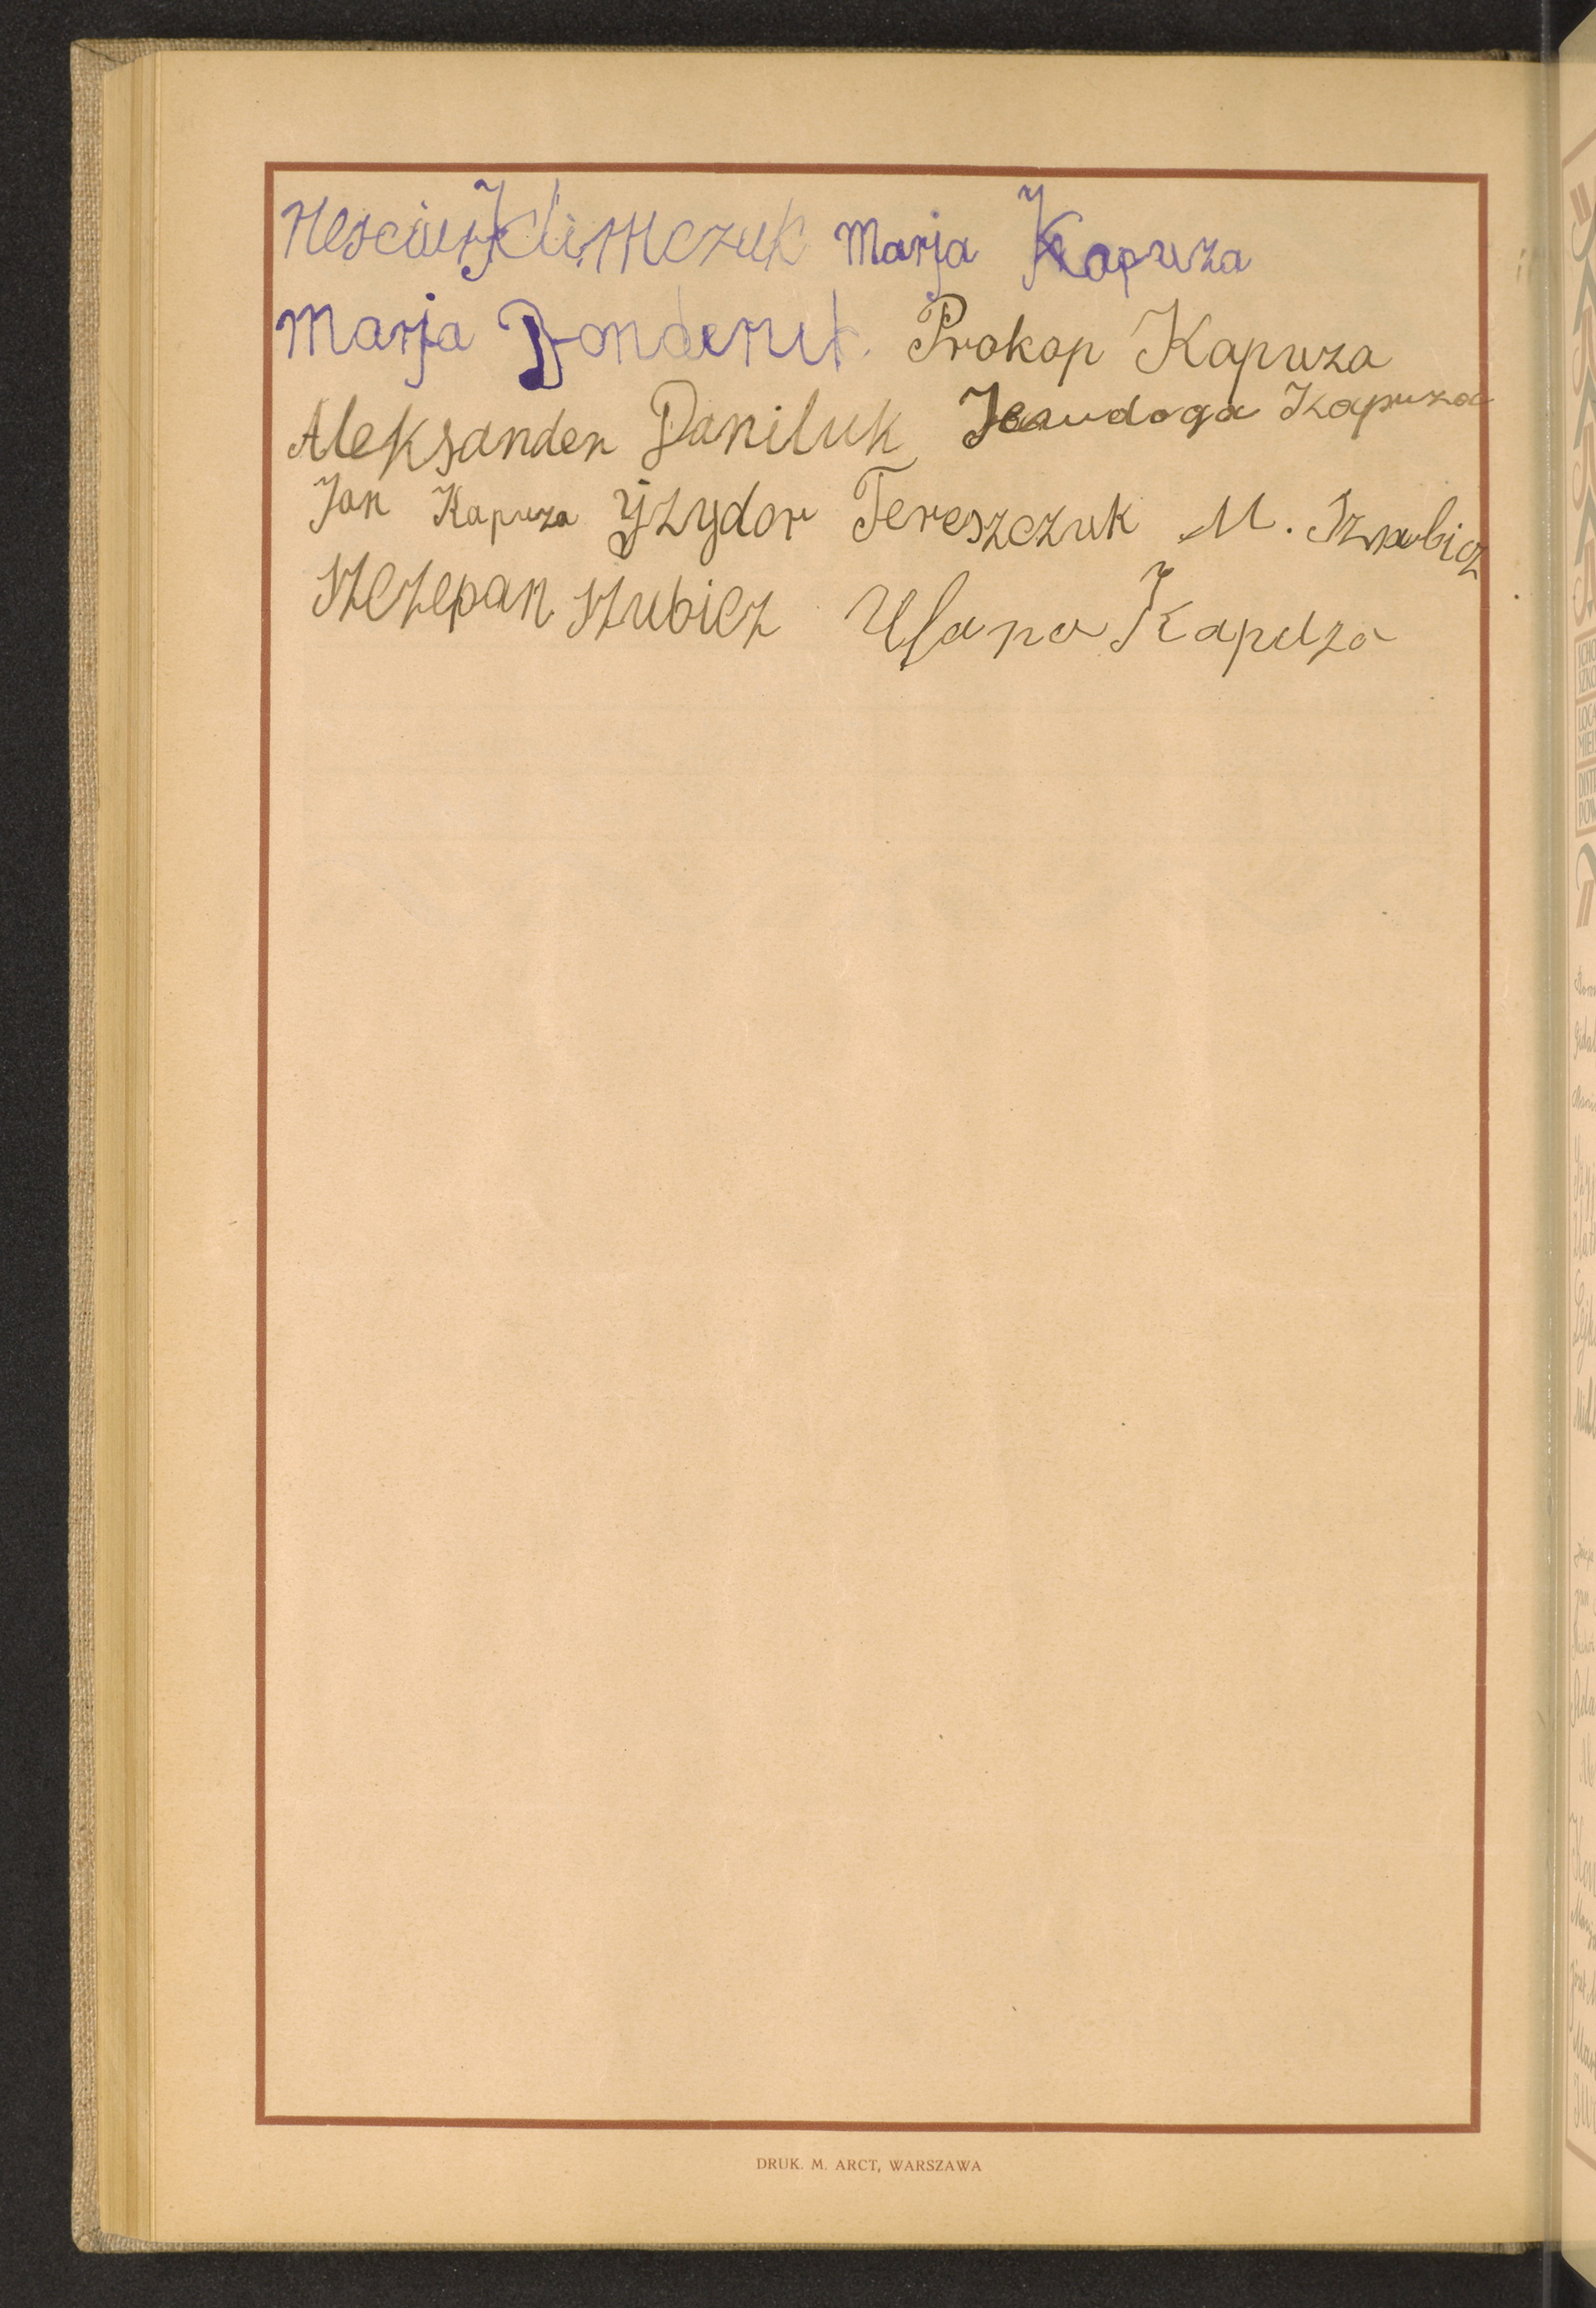 Klimczuk Marja Kapuza
Marja Prokop Kapuza
Aleksander Daniluk Jewdoga Kapuza
Jan Kapuza Yzydor Tereszczuk M.
Szczepan Szubicz Kapuza
DRUK. M. ARCT, WARSZAWA